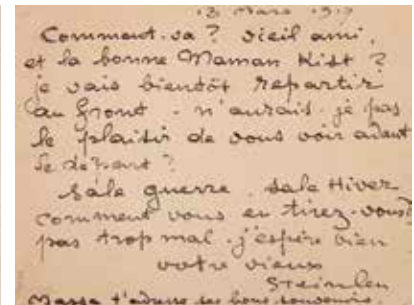 13 mars 1917
Comment va ? vieil ami,
et la bonne Maman Kist ?
je vais bientôt repartir
au front - n'aurais-je pas
le plaisir de vous voir avant
le départ ?
Sale guerre. sale Hiver
comment vous en tirez-vous?
pas trop mal - j'espère bien
votre vieux
Steinlen
Massa t'adresse ses bons souvenirs